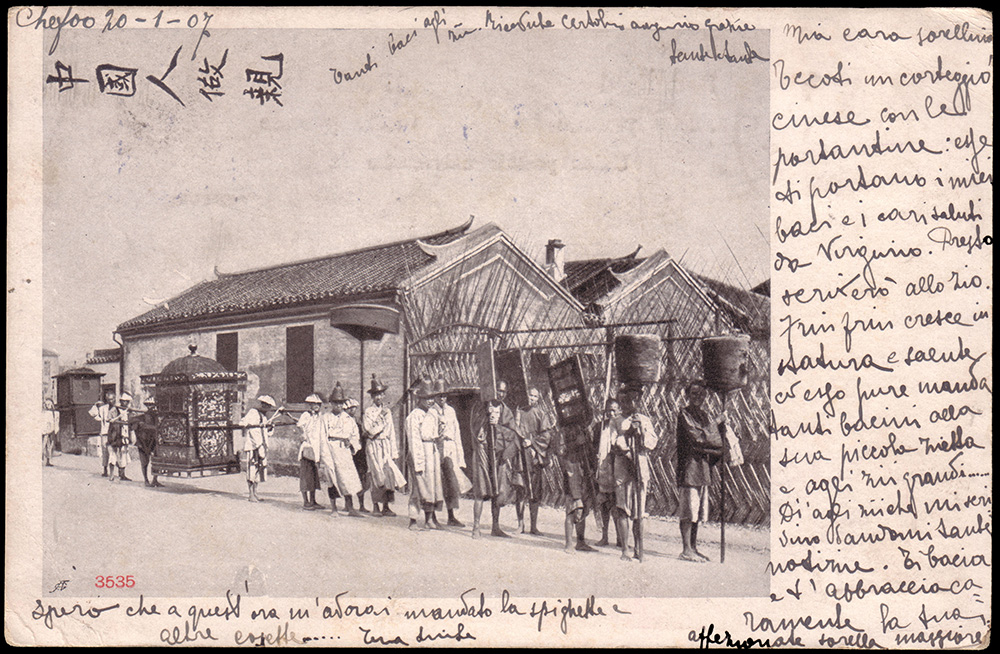 Chefoo 20-1-07
Tanti baci agli zii. Ricevute cartoline augurio grazie
tante tante
中國人做親
Mia cara sorellina
Eccoti un corteggio
cinese con le
portantine: esse
ti portano i miei
baci e i cari saluti
da Virginio. Presto
scriverò allo zio.
Frin frin cresce in
statura e salute
ed esso pure manda
tanti bacini alla
sua piccola zietta
e agli zii grandi.....
Di' agli zii che mi scri
vino dandomi tante
notizie. Ti bacia
e t'abbraccia ca=
ramente la tua
affezionate sorella maggiore
3535
Spero che a quest'ora m'avrai mandato la spighetta e
altre cosette.....